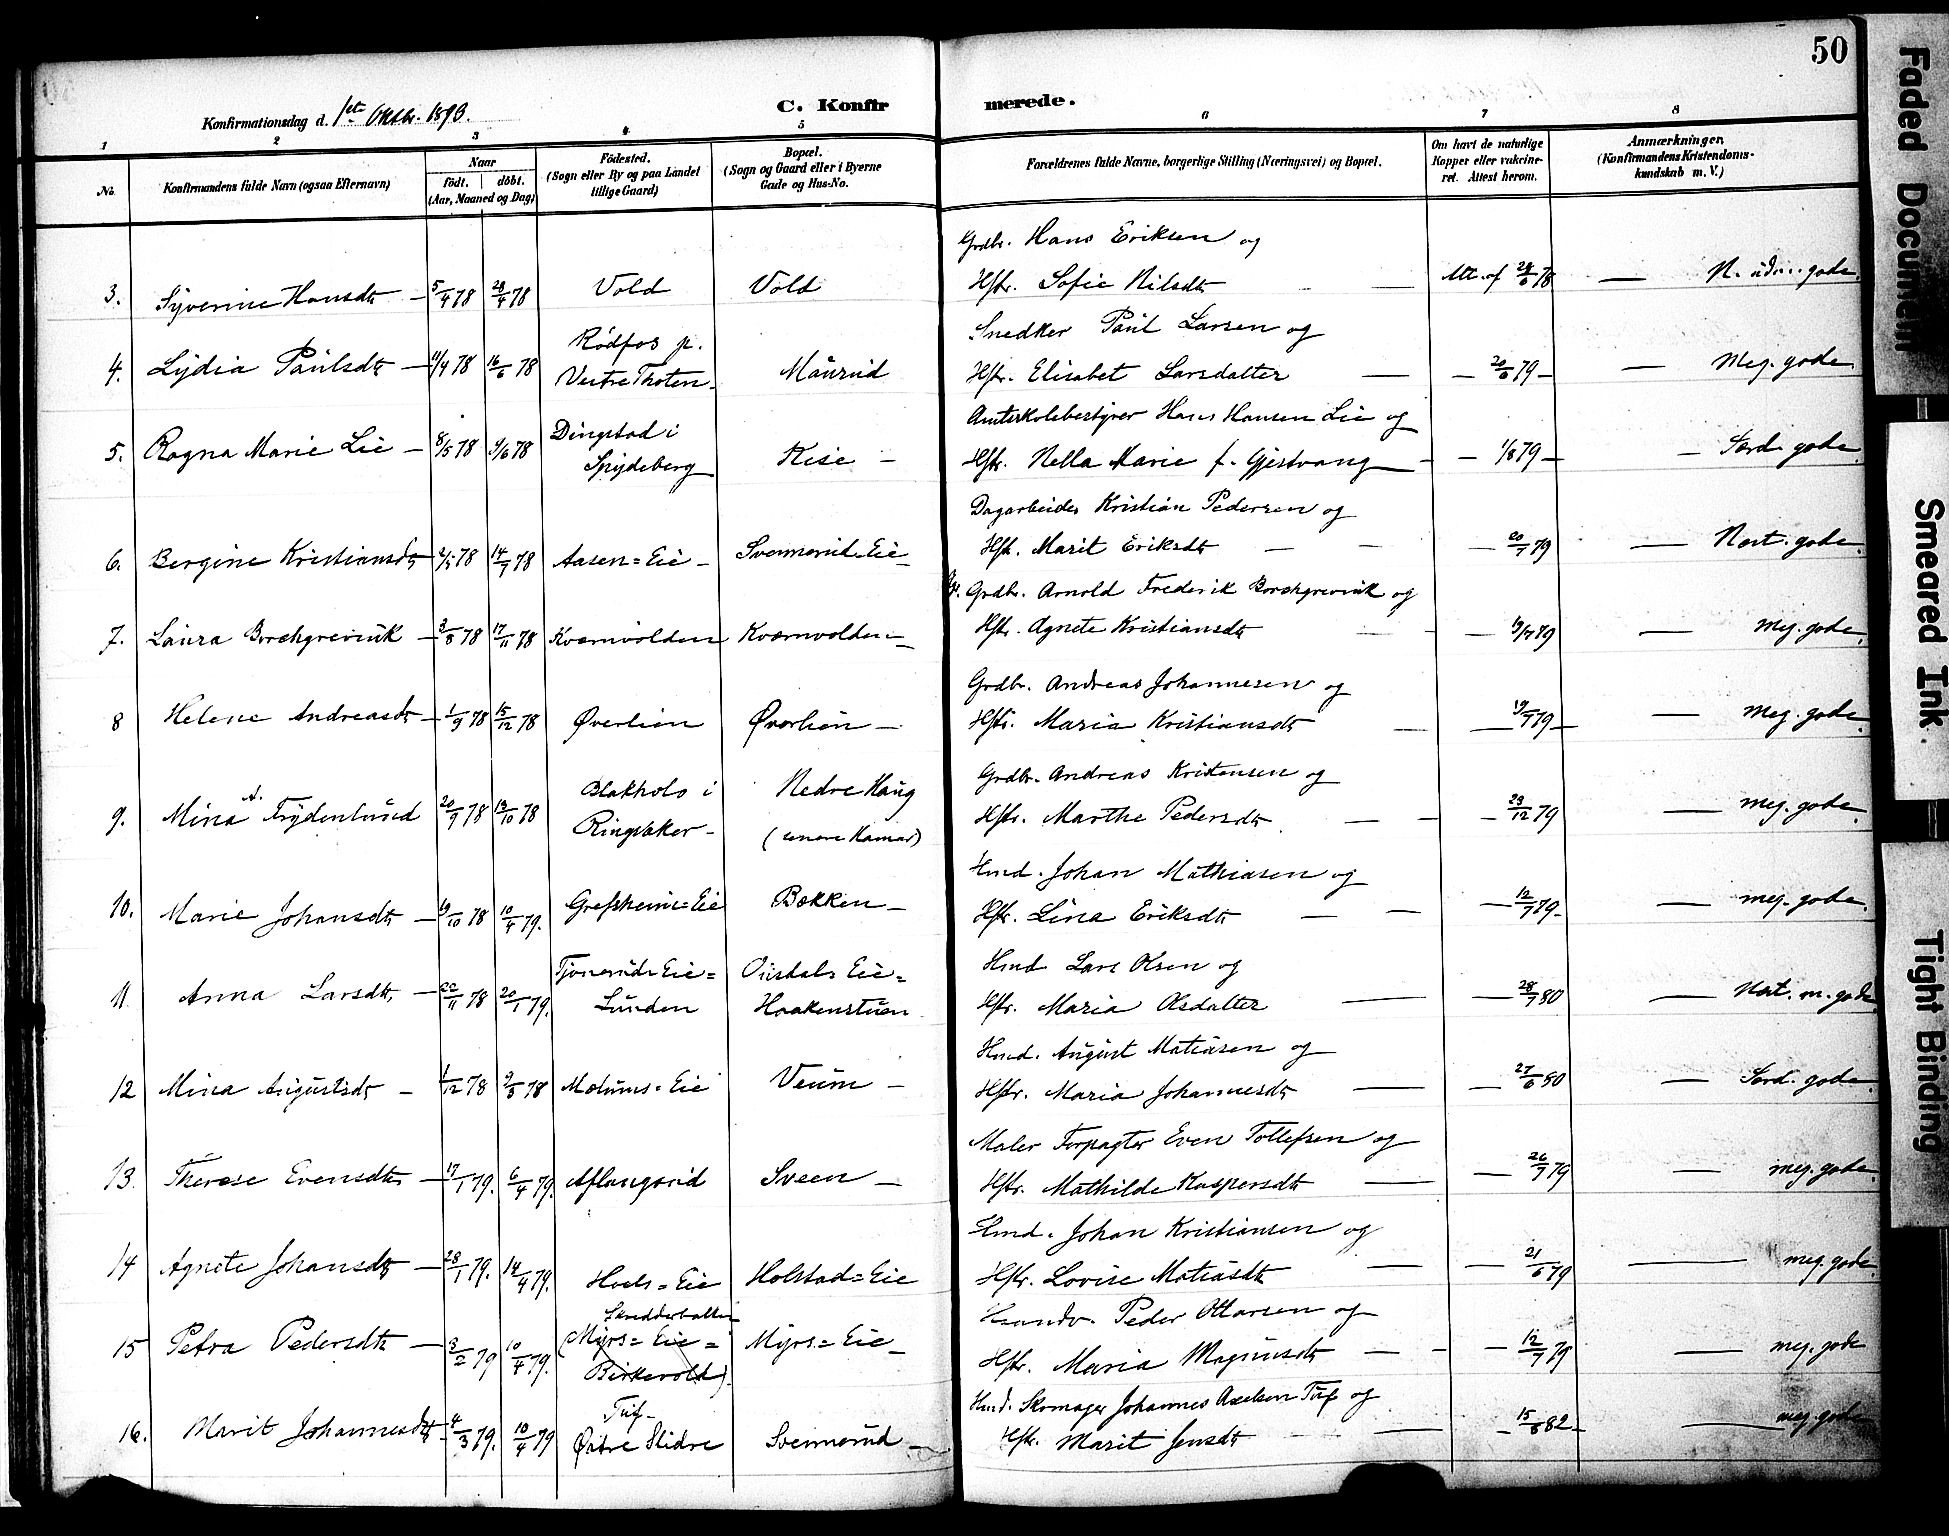 50
Konfirmationsdag d. 1ste Oktbr. 1893.
C. Konfirmerede.
1 2 3 4 5 6 7 8
No. Konfirmandens fulde Navn (ogsaa Efternavn) Naar födt. döbt. (Aar, Maaned og Dag) Födested. (Sogn eller By og paa Landet tillige Gaard) Bopæl. (Sogn og Gaard eller i Byerne Gade og Hus-No. Forældrenes fulde Navne, borgerlige Stilling (Næringsvei) og Bopæl. Om havt de naturlige Kopper eller vakcineret. Attest herom. Anmærkninger. (Konfirmandens Kristendomskundskab m. V.)
Grdbr. Hans Eriksen og
3. Syverine Hansdtr — 5/4 78 28/4 78 Vold Vold Hstr. Sofie Nilsdtr — Att. af 28/6 78 — gode
Rødfos p. Snedker Paul Larsen og
4. Lydia Paulsdtr — 11/4 78 16/6 78 Vestre Thoten Maurud Hstr. Elisabet Larsdatter — 20/6 79 — Meg. gode
Dingstad i Amtskolebestyrer Hans Hansen Lie og
5. Ragna Marie Lie — 8/5 78 9/6 78 Spydeberg Kise — Hstr. Nella Marie f. Gjestvang — 1/8 79 — Særd. gode
Dagarbeider Kristian Pedersen og
6. Bergine Kristiansdtr 2/5 78 14/7 78 Aasen=Eie — Svennerud=Eie — Hstr. Marit Eriksdtr — 20/7 79 — gode
Grdbr. Arnold Frederik Borchgrevink og
7. Laura Borchgrevink — 3/8 78 17/11 78 Kværnvolden Kværnvolden — Hstr. Agnete Kristiansdtr — 19/7 79 — Meg. gode
Grdbr. Andreas Johannesen og
8 Helene Andreasdtr — 1/9 78 15/12 78 Øverlien Øverlien — Hstr. Maria Kristiansdtr — 19/7 79 — Meg. gode
Blakhols i Nedre Haug Grdbr. Andreas Kristensen og
9. Mina A. Frydenlund 20/9 78 13/10 78 Ringsaker — (senere Hamar) Hstr. Marthe Pedersdtr — 23/12 79 — meg. gode
Hmd. Johan Mathiasen og
10. Marie Johansdtr — 19/10 78 10/4 79. Grefsheim=Eie Bakken — Hstr. Lina Eriksdtr — 12/7 79 — meg. gode
Eie= Eie= Hmd Lars Olsen og
11. Anna Larsdtr — 22/11 78 20/1 79. Lunden Haakenstuen Hstr. Maria Olsdatter — 28/7 80 — m. gode
Hmd. August Matiasen og
12 Mina Augustsdtr — 1/12 78 Mælums=Eie Veum — Hstr. Maria Johannesdtr — 27/6 80 — Særd. gode
Maler Forpagter Even Tollefsen og
13. Therese Evensdtr — 17/1 79. 6/4 79. Aflangsrud Sveen — Hstr. Mathilde Kaspersdtr — 26/7 79 — meg. gode
Hmd. Johan Kristiansen og
14 Agnete Johansdtr — 28/1 79. 14/4 79. Hoels=Eie Holstad=Eie Hstr. Lovise Matiasdtr — 21/6 79 — meg. gode
Skredderbakken Peder Ottarsen og
15 Petra Pedersdtr — 3/2 79 10/4 79. (Myrs=Eie= Birkevold). Myrs=Eie — Hstr. Maria Magnusdtr — 12/7 79 — meg. gode
Tuf— Hmd. Skomager Johannes Axelsen Tuf og
16. Marit Johannesdtr 4/3 79. 10/4 79 Østre Slidre Svennerud — Hstr. Marit Jensdtr — 15/6 82 — meg. gode
Faded Document
Smeared Ink.
Tight Binding